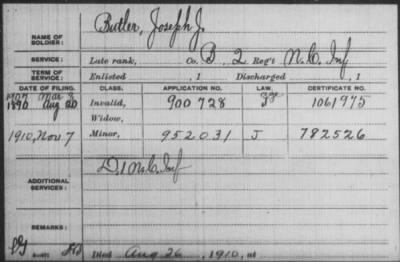 NAME OF SOLDIER: Butler, Joseph J.
SERVICE: Late rank, Co. B, 2 Reg't N.C. Inf
TERM OF SERVICE: Enlisted , 1 Discharged , 1
DATE OF FILING. CLASS. APPLICATION NO. LAW. CERTIFICATE NO.
1907 Mar
1890 Aug 20 Invalid, 900728 1061975
Widow,
1910, Nov 7 Minor, 952031 J 782526
ADDITIONAL SERVICES: D, 1 N.C. Inf
REMARKS:
Died Aug 26, 1910, at